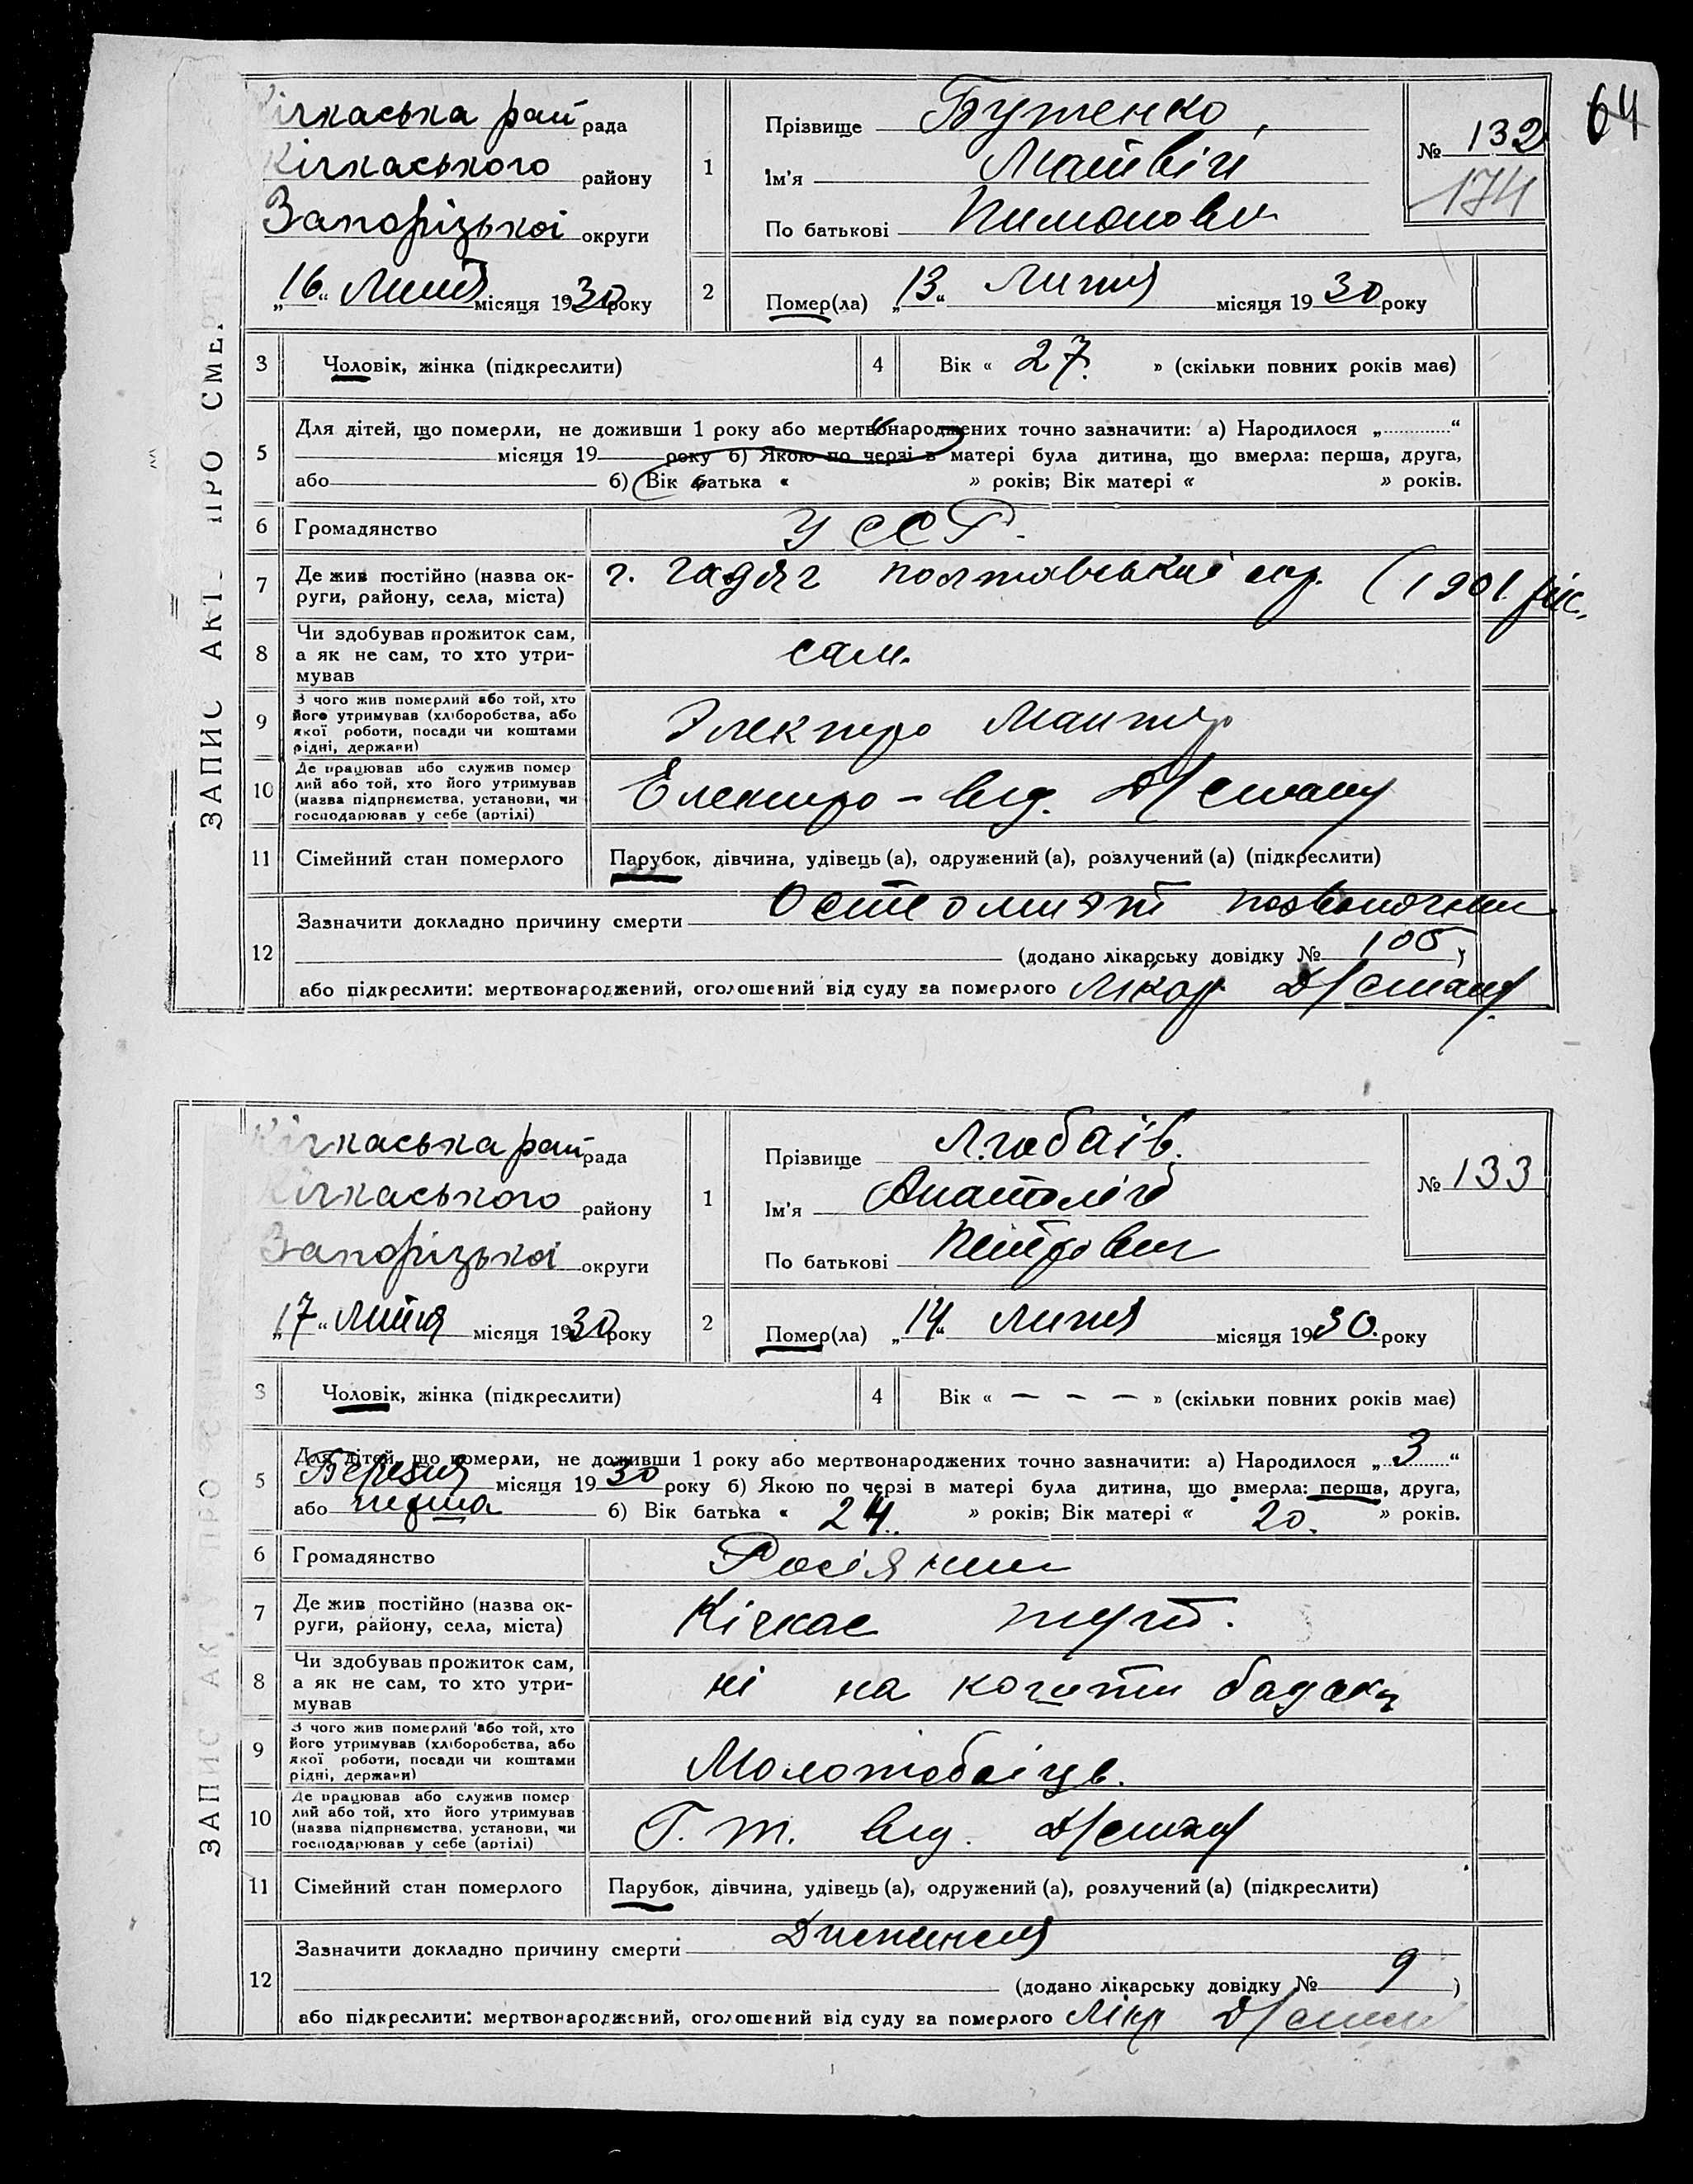 64
ЗАПИС АКТУ ПРО СМЕР
Кічкаська рай рада
Кічкаського району
Запорізької округи
„16“ Липня місяця 1930 року
1
Прізвище Бутенко,
Ім'я Матвій
По батькові
№ 132
174
2
Помер(ла) „13“ Липня місяця 1930 року
3
Чоловік, жінка (підкреслити)
4
Вік « 27. » (скільки повних років має)
5
Для дітей, що померли, не доживши 1 року або мертвонароджених точно зазначити: а) Народилося „ “
місяця 19 року б) Якою по черзі в матері була дитина, що вмерла: перша, друга,
або б) Вік батька « » років; Вік матері « » років.
6
Громадянство
УССР.
7
Де жив постійно (назва ок-
руги, району, села, міста)
г. Гадяч полтавський окр. (1901 рік.
8
Чи здобував прожиток сам,
а як не сам, то хто утри-
мував
сам.
9
З чого жив померлий або той, хто
його утримував (хліборобства, або
якої роботи, посади чи коштами
рідні, держави)
Электро Монтер
10
Де працював або служив помер
лий або той, хто його утримував
(назва підприємства, установи, чи
господарював у себе (артілі)
Електро – від. Д/стану
11
Сімейний стан померлого
Парубок, дівчина, удівець (а), одружений (а), розлучений (а) (підкреслити)
12
Зазначити докладно причину смерти
(додано лікарську довідку № 105)
або підкреслити: мертвонароджений, оголошений від суду за померлого Лікар Д/стану
ЗАПИС АКТУ ПРО
Кічкаська рай рада
Кічкаського району
Запорізької округи
„17“ Липня місяця 1930 року
1
Прізвище
Ім'я Анатолій
По батькові Петрович
№ 133
2
Помер(ла) „14“ Липня місяця 1930. року
3
Чоловік, жінка (підкреслити)
4
Вік « – – – » (скільки повних років має)
5
Для дітей, що померли, не доживши 1 року або мертвонароджених точно зазначити: а) Народилося „3“
Березня місяця 1930 року б) Якою по черзі в матері була дитина, що вмерла: перша, друга,
або перша б) Вік батька « 24. » років; Вік матері « 20. » років.
6
Громадянство
Росіянин
7
Де жив постійно (назва ок-
руги, району, села, міста)
Кічкас
8
Чи здобував прожиток сам,
а як не сам, то хто утри-
мував
ні на кошти
9
З чого жив померлий або той, хто
його утримував (хліборобства, або
якої роботи, посади чи коштами
рідні, держави)
10
Де працював або служив помер
лий або той, хто його утримував
(назва підприємства, установи, чи
господарював у себе (артілі)
Г. т. від. Д/стану
11
Сімейний стан померлого
Парубок, дівчина, удівець (а), одружений (а), розлучений (а) (підкреслити)
12
Зазначити докладно причину смерти
(додано лікарську довідку № 9)
або підкреслити: мертвонароджений, оголошений від суду за померлого Лікр